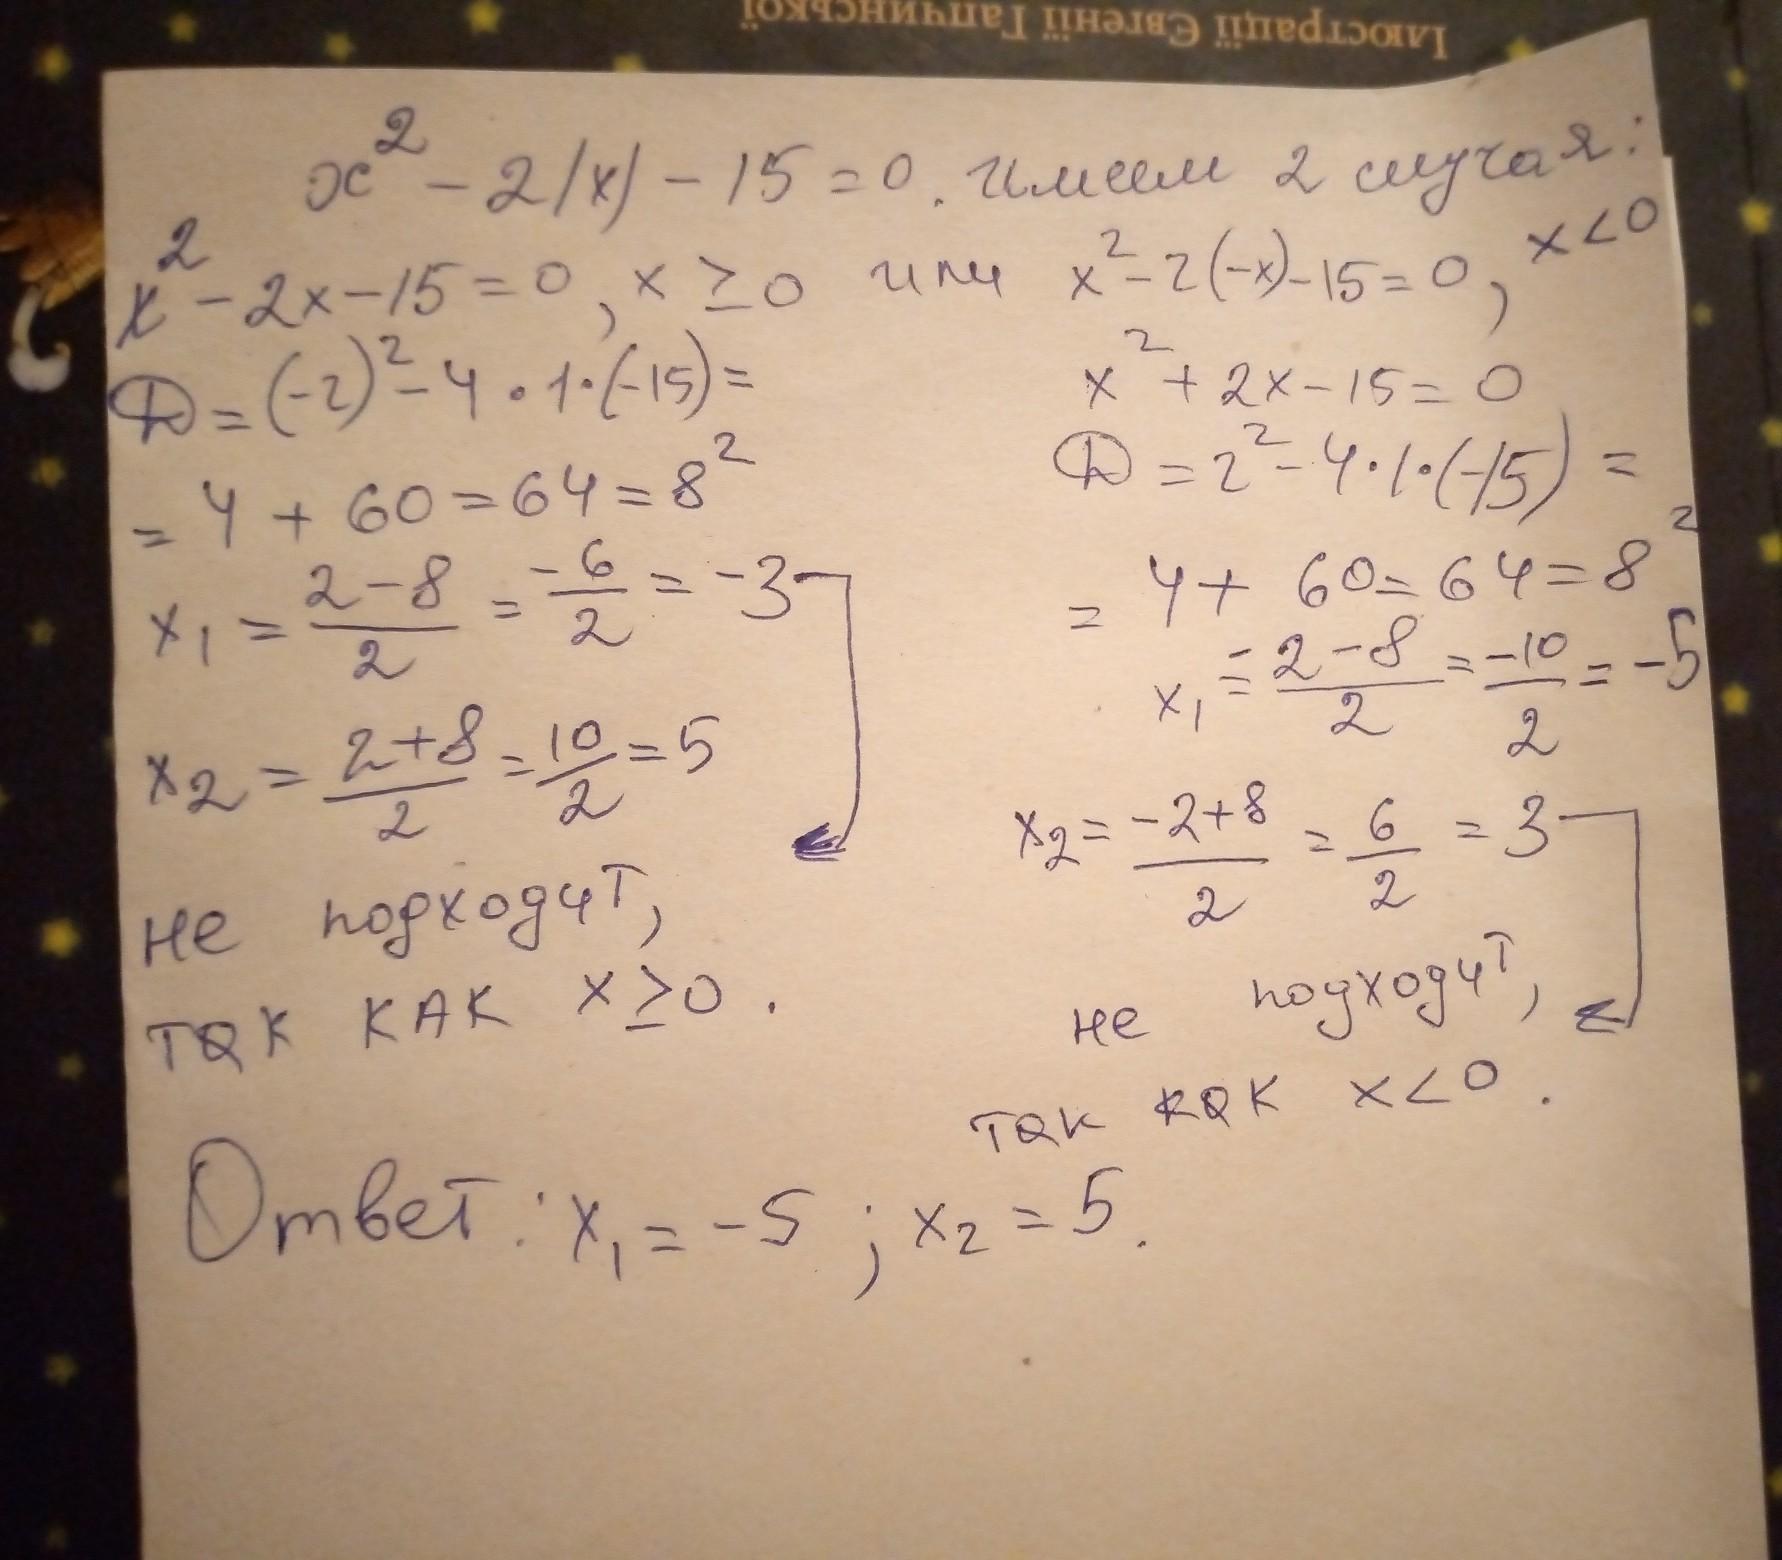 Ілюстрації Євгенії Гапчинської
x² - 2|x| - 15 = 0. имеем 2 случая:
x² - 2x - 15 = 0, x ≥ 0 или x² - 2(-x) - 15 = 0, x < 0
D = (-2)² - 4 · 1 · (-15) =
= 4 + 60 = 64 = 8²
x₁ = (2 - 8)/2 = -6/2 = -3
x₂ = (2 + 8)/2 = 10/2 = 5
не подходит,
так как x ≥ 0.
x² + 2x - 15 = 0
D = 2² - 4 · 1 · (-15) =
= 4 + 60 = 64 = 8²
x₁ = (-2 - 8)/2 = -10/2 = -5
x₂ = (-2 + 8)/2 = 6/2 = 3
не подходит,
так как x < 0.
Ответ: x₁ = -5; x₂ = 5.